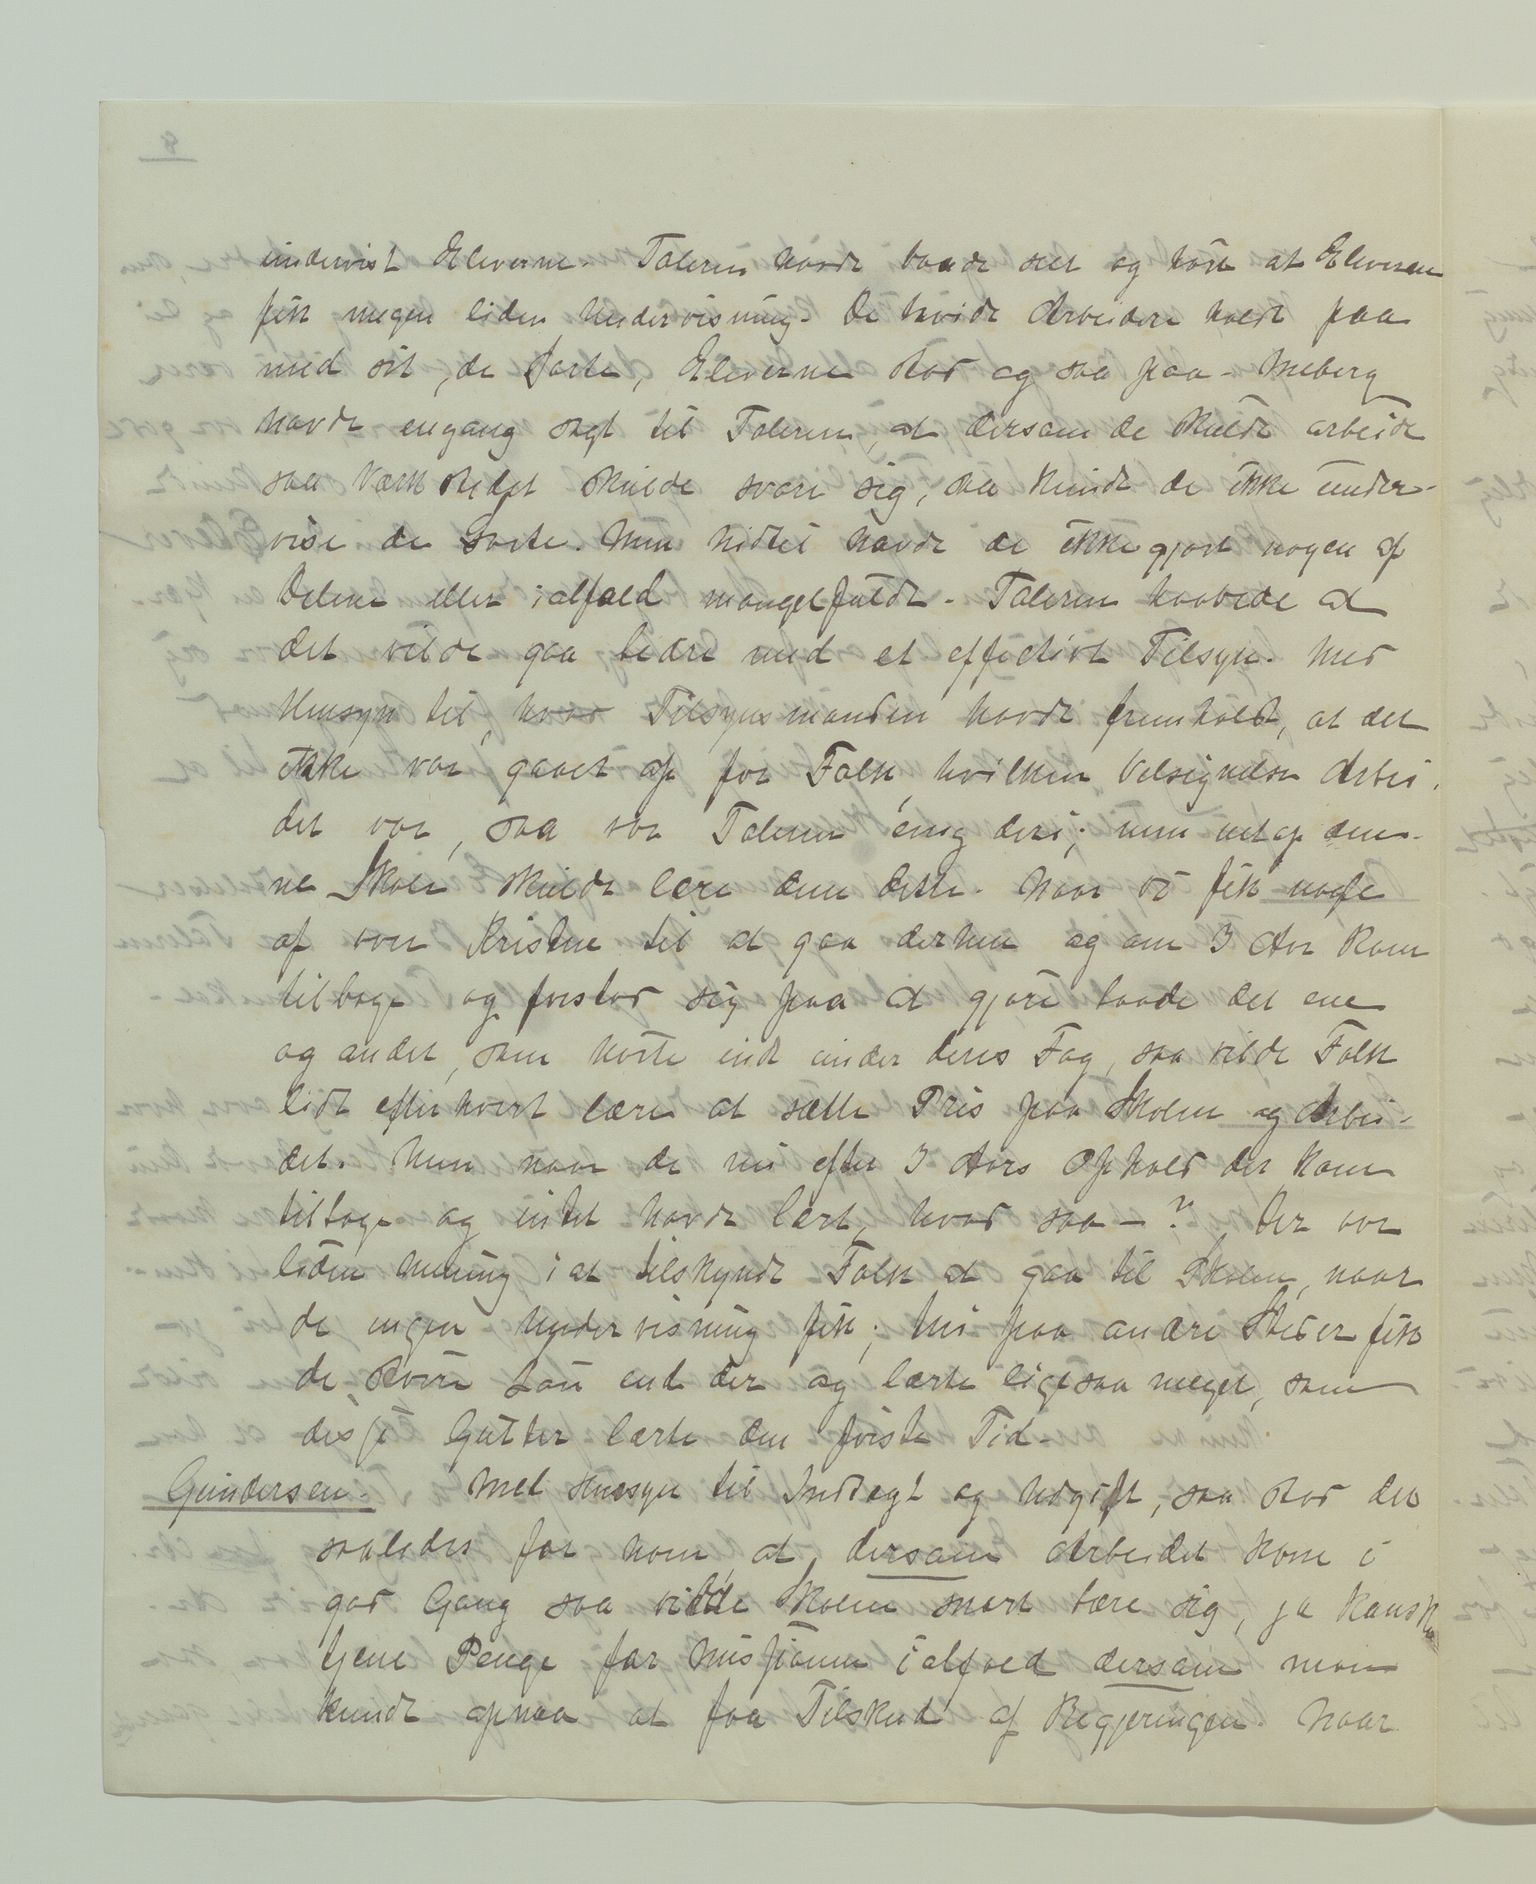 undervist Eleverne. Taleren havde baade seet og hørt at Eleverne
fik megen liden Undervisning. De hvide Arbeidere holdt paa
med sit, de sorte, Eleverne stod og saa paa. Meberg
havde engang sagt til Taleren, at dersom de skulde arbeide
saa Værkstedet skulde svare sig, saa kunde de ikke under-
vise de Sorte. Men hidtil havde de ikke gjort nogen af
Delene eller ialfald mangelfuldt. Taleren haabede at
det vilde gaa bedre med et effectivt Tilsyn. Med
Hensyn til, hvad Tilsynsmanden havde fremholdt, at det
ikke var gaaet op for Folk, hvilken Velsignelse Arbei-
det var, saa var Taleren enig deri; men netop den-
ne Skole skulde lære dem dette. Naar vi fik nogle
af vore Kristne til at gaa derhen og om 3 Aar kom
tilbage og forstod sig paa at gjøre baade det ene
og andet, som hørte ind under deres Fag, saa vilde Folk
lidt efter hvert lære at sætte Pris paa Skolen og Arbei-
det. Men naar de nu efter 3 Aars Ophold der kom
tilbage og intet havde lært, hvad saa – ? Der var
liden Mening i at tilskynde Folk at gaa til Skolen, naar
de ingen Undervisning fik; thi paa andre Steder fik
de større Løn end der og lærte ligesaa meget, som
disse Gutter lærte den første Tid.
Gundersen. Med Hensyn til Indtægt og Udgift, saa stod det
saaledes for ham, at dersom Arbeidet kom i
god Gang saa vilde Skolen snart bære sig, ja kanske
tjene Penge for Missionen ialfald dersom man
kunde opnaa at faa Tilskud af Regjeringen. Naar